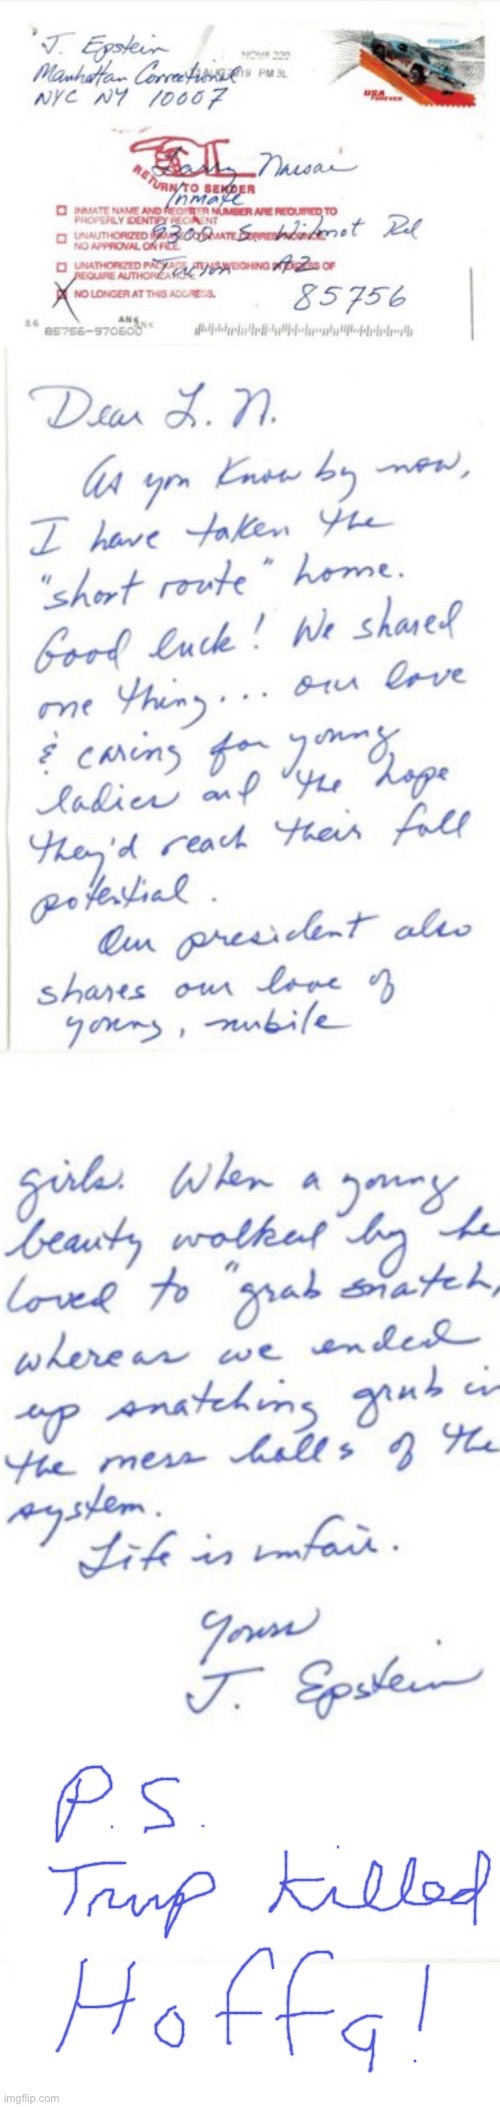 J. Epstein
Manhattan Correctional
NYC NY 10007
NOVA 220
AUG 2019 PM 3 L
USA
FOREVER
RETURN TO SENDER
Larry Nassar
Inmate
INMATE NAME AND REGISTER NUMBER ARE REQUIRED TO
PROPERLY IDENTIFY RECIPIENT
UNAUTHORIZED INMATE TO INMATE CORRESPONDENCE
NO APPROVAL ON FILE.
9300 S. Wilmot Rd
UNATHORIZED PACKAGE ITEMS WEIGHING IN EXCESS OF
REQUIRE AUTHORIZATION
Tucson AZ
85756
X NO LONGER AT THIS ADDRESS.
86
ANK
85756-970600
Dear L. N.
As you know by now,
I have taken the
"short route" home.
Good luck! We shared
one thing... our love
& caring for young
ladies and the hope
they'd reach their full
potential.
Our president also
shares our love of
young, nubile
girls. When a young
beauty walked by he
loved to "grab snatch,
whereas we ended
up snatching grub in
the mess halls of the
system.
Life is unfair.
Yours
J. Epstein
P.S.
Trump killed
Hoffa!
imgflip.com